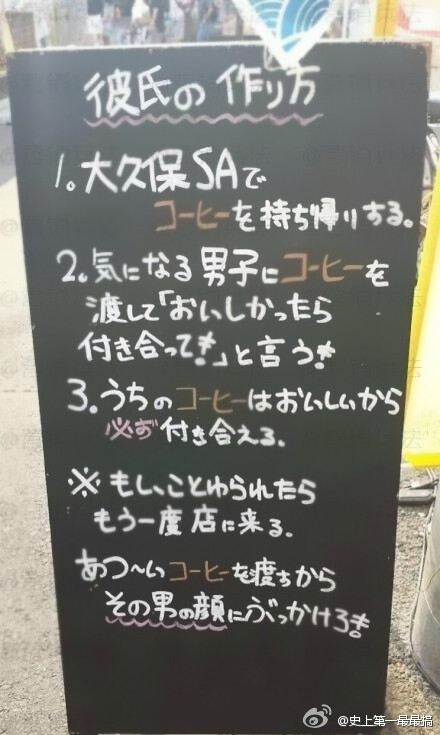 彼氏の作り方
1。大久保SAで
コーヒーを持ち帰りする。
2。気になる男子にコーヒーを
渡して「おいしかったら
付き合って!」と言う!
3.うちのコーヒーはおいしいから
必ず付き合える。
※もし、ことゆられたら
もう一度店に来る。
あつ〜いコーヒーを渡すから
その男の顔にぶっかけろ!
@史上第一最最搞